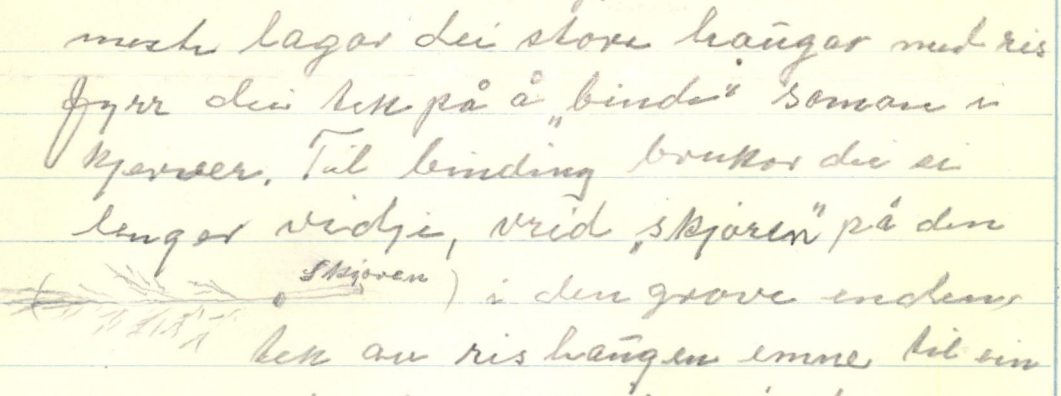 meste lagar dei store haugar med ris
fyrr dei tek på å „binde" saman i
kjerver. Til binding brukar dei ei
lenger vidje, vrid „skjoren" på den
skjoren ) i den grove enden,
tek av ris haugen emne til ein